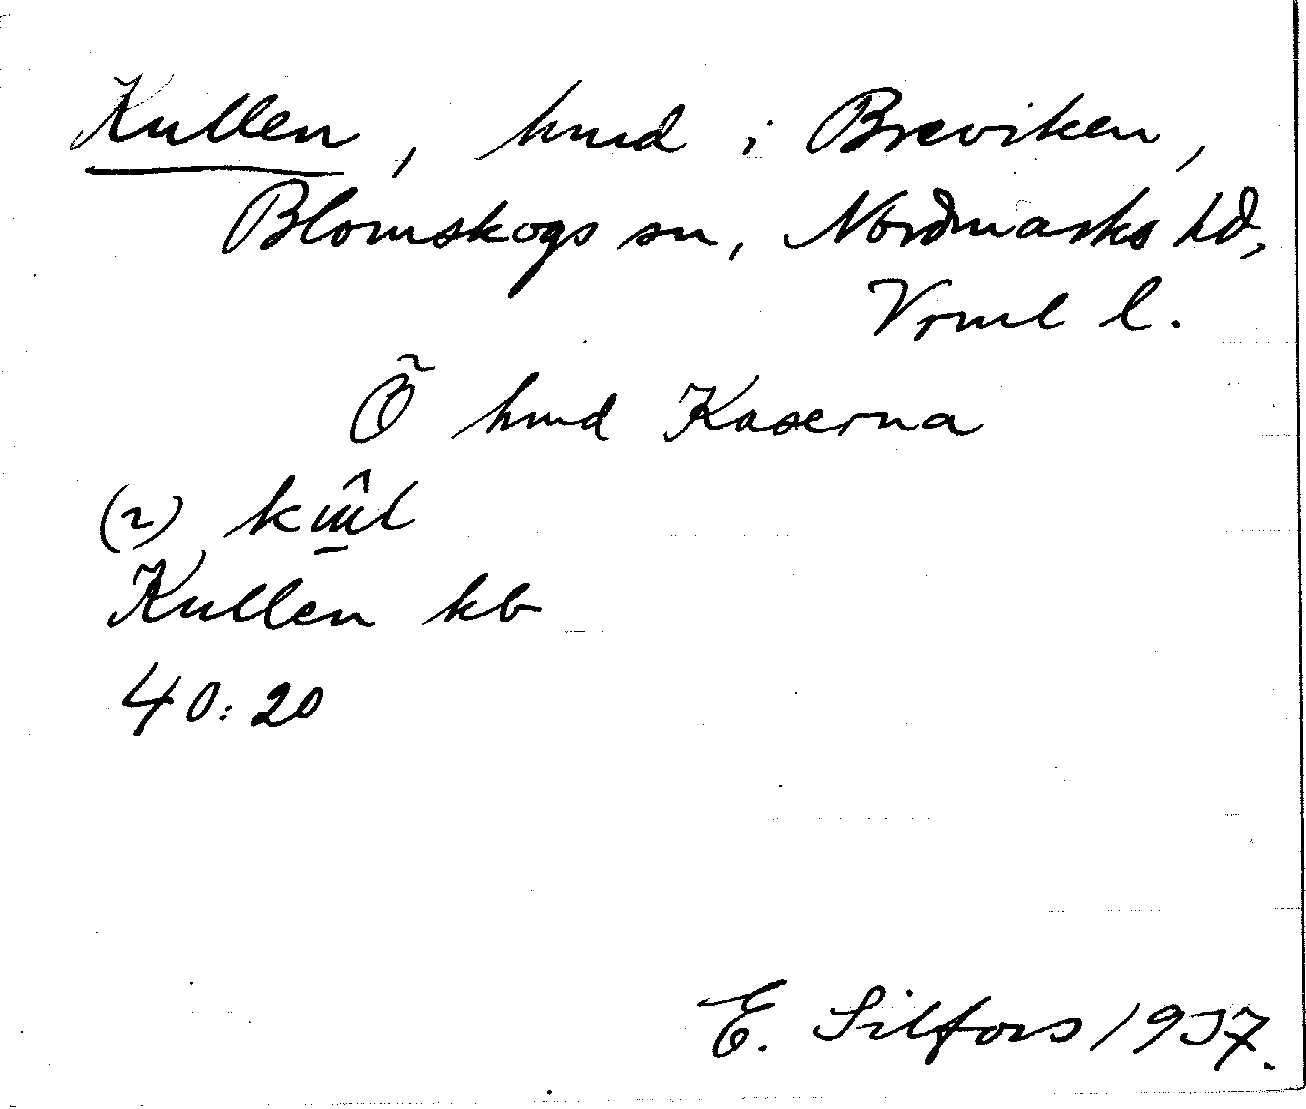 Kullen, hmd i Breviken,
Blomskogs sn, Nordmarks hd,
Vrml l.
Ö hmd Kaserna
(2)
Kullen kb
40:20
E. Silfors 1937.